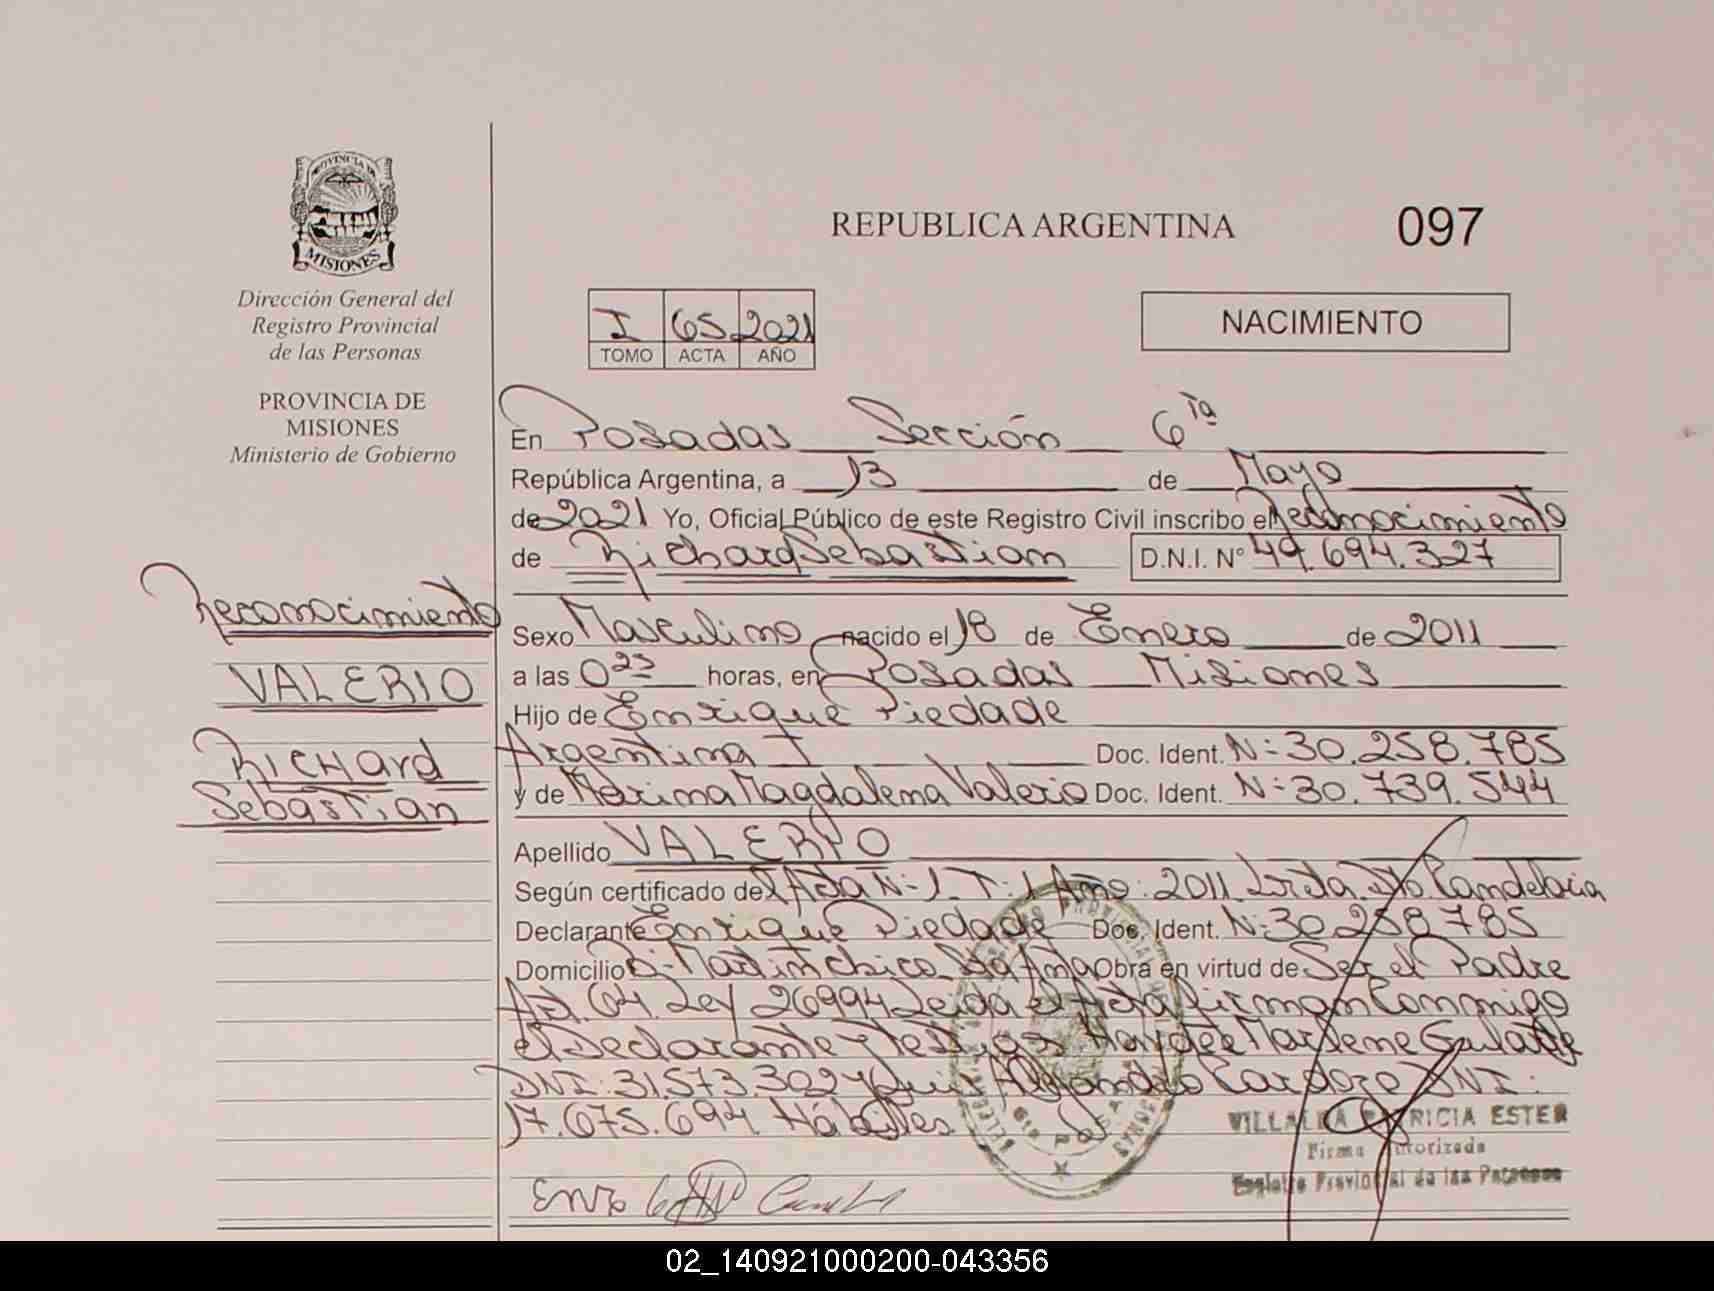 PROVINCIA DE
MISIONES
Dirección General del
Registro Provincial
de las Personas
PROVINCIA DE
MISIONES
Ministerio de Gobierno
Reconocimiento
VALERIO
RICHard
Sebastian
REPUBLICA ARGENTINA
097
I 65 2021
TOMO ACTA AÑO
NACIMIENTO
En Posadas Sección 6ta
República Argentina, a 13 de Mayo
de 2021 Yo, Oficial Público de este Registro Civil inscribo el Reconocimiento
de Richard Sebastian D.N.I. N° 49.694.327
Sexo Masculino nacido el 18 de Enero de 2011
a las 0 25 horas, en Posadas Misiones
Hijo de Enrique Piedade
Argentina Doc. Ident. N: 30.258.785
y de Marina Magdalena Valerio Doc. Ident. N: 30.739.544
Apellido VALERIO
Según certificado del Acta N: 1 T: 1 Año: 2011 Dto Candelaria
Declarante Enrique Piedade Doc. Ident. N: 30.258.785
Domicilio B: Martin chico Sta Ana Obra en virtud de Ser el Padre
Art. 64 Ley 26994 Leida el Acta firman Conmigo
el Declarante y testigos Haydee Marlene
DNI: 31.573.302 y Luis Alejandro Cardozo DNI:
17.675.694 Hábiles
VILLALBA PATRICIA ESTER
Firma Autorizada
Registro Provincial de las Personas
02_140921000200-043356